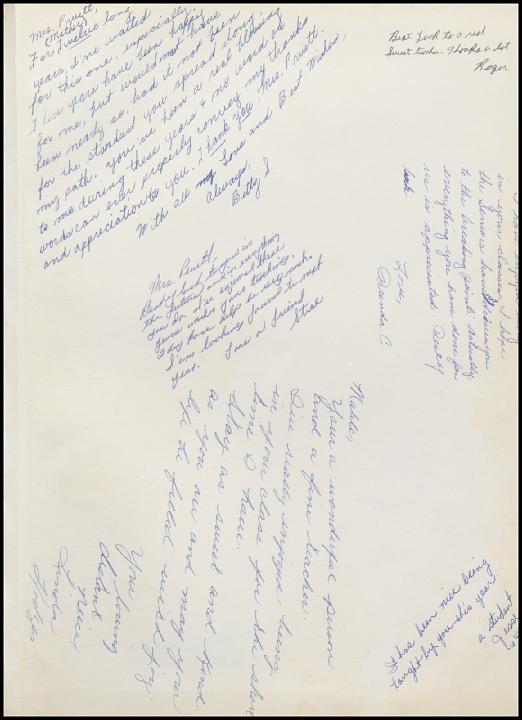 Mrs. Pruett,
(Mitty)
For twelve long
years, I've waited
for this one, especially.
I hope you have been happy
for me, but would not have
been nearly so, had it not been
for the stardust you spread along
my path. You've been a real blessing
to me during these years & no word or
words can ever properly convey my thanks
and appreciation to you. I thank you Mrs. Pruett.
With all my love and Best Wishes,
Always,
Betty J.
Best luck to a real
Sweet teacher. Thanks a lot
Roger
in your classes. I hope
the Seniors haven't
to the breaking point. Actually
everything you have done for
us is appreciated. Best of
luck.
Love,
Branda C.
Mrs. Pruett
Best of luck to you in
the future, and in everything
you do. I've enjoyed these
years under your teaching.
They have helped me very much.
I'm looking forward to next
year.
Love a friend
Stee
Your a wonderful person
and a fine teacher.
I've really enjoyed being
in your class for the short
time I have.
Stay as sweet and kind
as you are and may your
life be filled with joy.
Your loving
student
Linda
It has been nice being
taught by you this year.
a student
Jesse